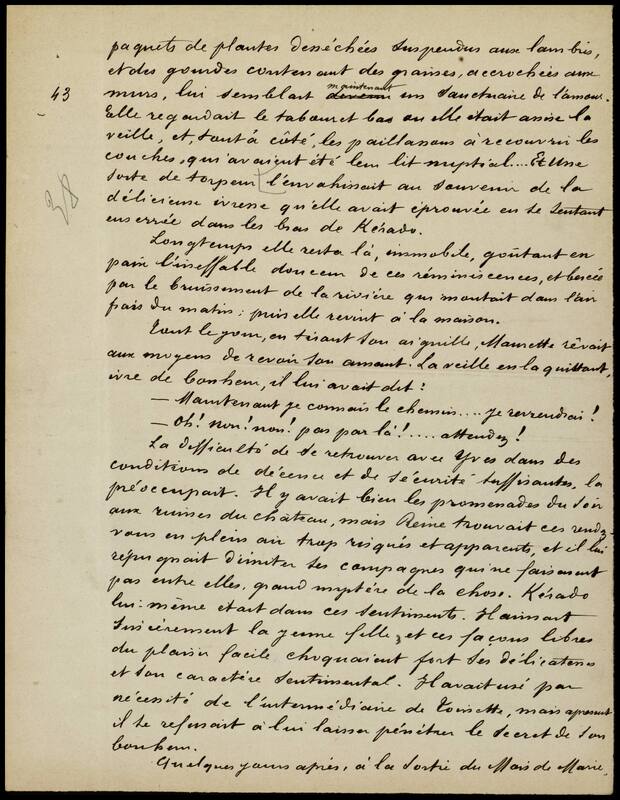 paquets de plantes desséchées suspendus aux lambris,
et des gourdes contenant des graines, accrochées aux
43
maintenant
murs, lui semblait devenu un sanctuaire de l'amour.
Elle regardait le tabouret bas où elle était assise la
veille, et, tout à côté, les paillassons à recouvrir les
couches, qui avaient été leur lit nuptial.... Et une
sorte de torpeur l'envahissait au souvenir de la
38
délicieuse ivresse qu'elle avait éprouvée en se sentant
enserrée dans les bras de Kérado.
Longtemps elle resta là, immobile, goûtant en
paix l'ineffable douceur de ces réminiscences, et bercée
par le bruissement de la rivière qui montait dans l'air
frais du matin; puis elle revint à la maison.
Tout le jour, en tirant son aiguille, Maurette rêvait
aux moyens de revoir son amant. La veille en la quittant,
ivre de bonheur, il lui avait dit:
— Maintenant je connais le chemin.... je reviendrai!
— Oh! non! non! pas par là!.... attendez!
La difficulté de se retrouver avec Yves dans des
conditions de décence et de sécurité suffisantes, la
préoccupait. Il y avait bien les promenades du soir
aux ruines du château, mais Reine trouvait ces rendez-
vous en plein air trop risqués et apparents, et il lui
répugnait d'imiter ses compagnes qui ne faisaient
pas entre elles, grand mystère de la chose. Kérado
lui-même était dans ces sentiments. Il aimait
sincèrement la jeune fille, et ces façons libres
du plaisir facile choquaient fort ses délicatesses
et son caractère sentimental. Il avait usé par
nécessité de l'intermédiaire de Toinette, mais à présent
il se refusait à lui laisser pénétrer le secret de son
bonheur.
Quelques jours après, à la sortie du Mois de Marie,